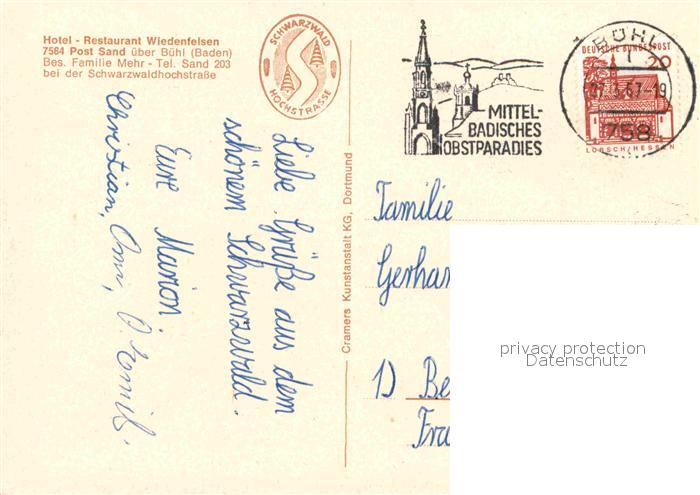 Hotel - Restaurant Wiedenfelsen
7584 Post Sand über Bühl (Baden)
Bes. Familie Mehr - Tel. Sand 203
bei der Schwarzwaldhochstraße
SCHWARZWALD
HOCHSTRASSE
MITTEL-
BADISCHES
OBSTPARADIES
BÜHL
67-19
758
DEUTSCHE BUNDESPOST
20
LORSCH/HESSEN
Liebe Grüße aus dem
schönem Schwarzwald.
Eure Marion.
Christian, Omi, O. Emil.
Cramers Kunstanstalt KG, Dortmund
Familie
Gerhar
1) Be
Fra
privacy protection
Datenschutz